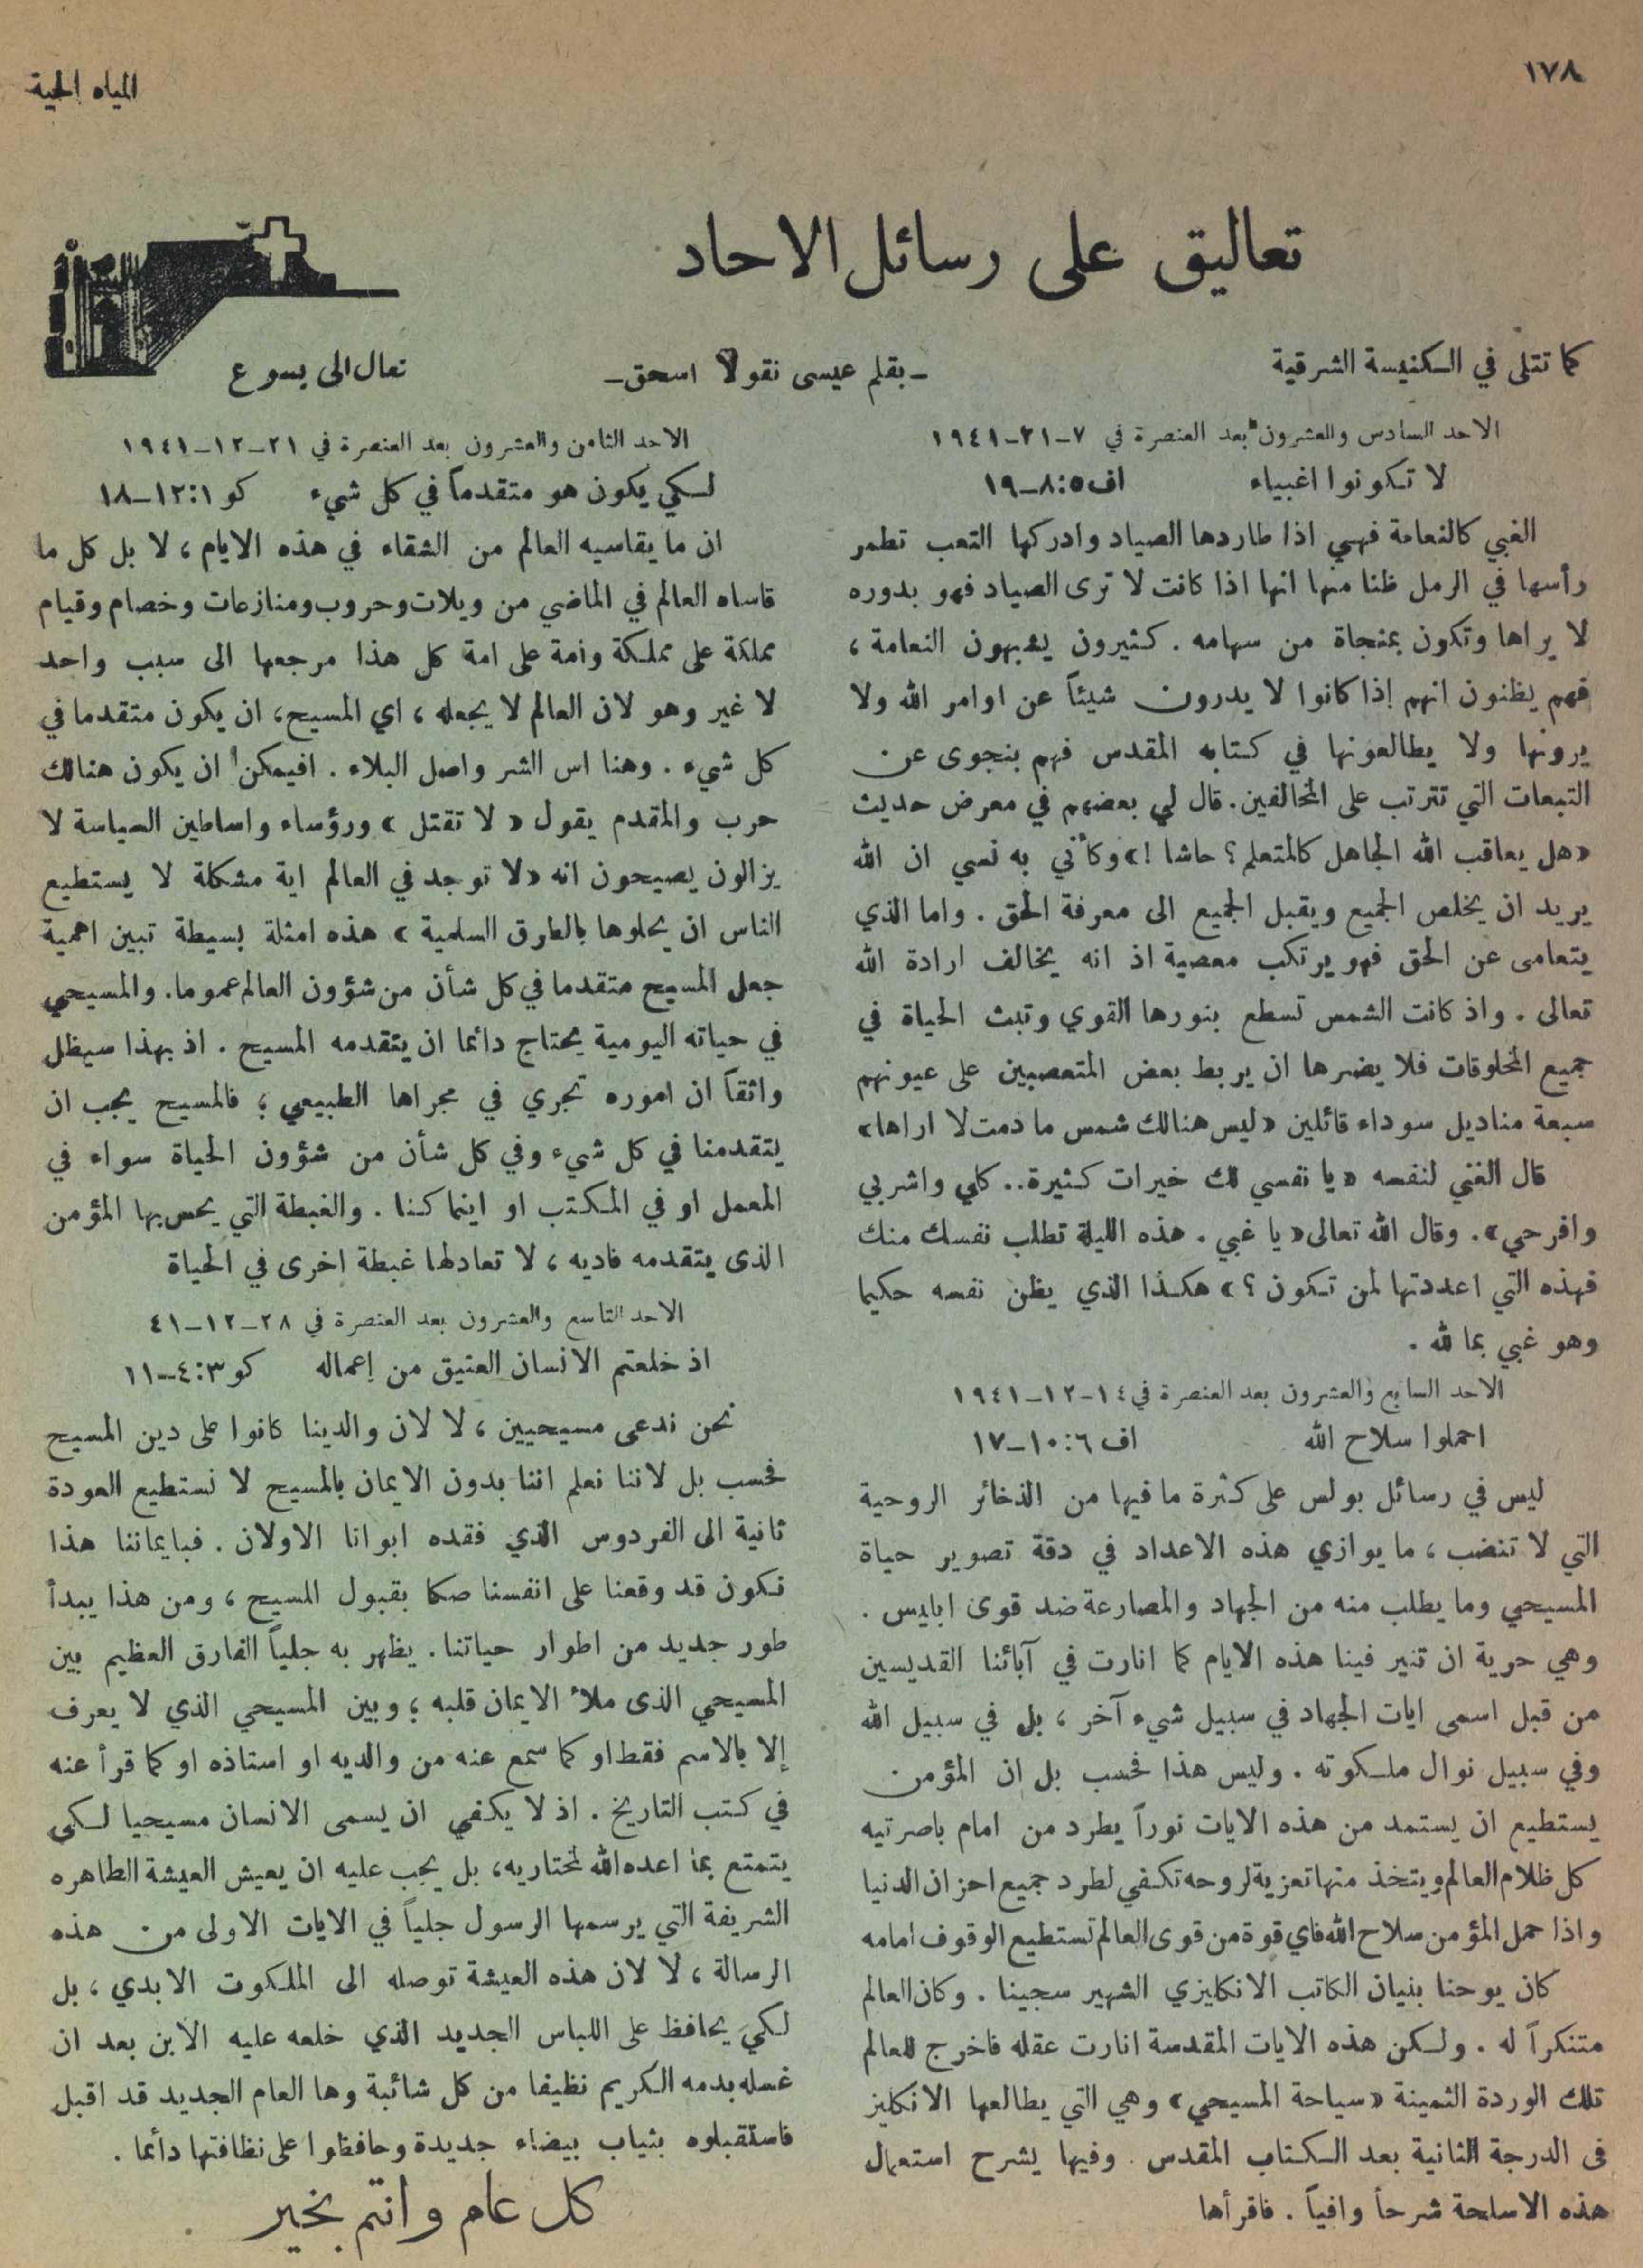 ١٧٨
المياه الحية
تعاليق على رسائل الاحاد
كما تتلى في الكنيسة الشرقية
ـ بقلم عيسى نقولا اسحق ـ
تعال الى يسوع
الاحد السادس والعشرون بعد العنصرة في ٧-٢١-١٩٤١
لا تكونوا اغبياء اف ٥:٨-١٩
الغبي كالنعامة فهي اذا طاردها الصياد وادركها التعب تطمر
رأسها في الرمل ظنا منها انها اذا كانت لا ترى الصياد فهو بدوره
لا يراها وتكون بمنجاة من سهامه . كثيرون يشبهون النعامة ،
فهم يظنون انهم إذا كانوا لا يدرون شيئاً عن اوامر الله ولا
يرونها ولا يطالعونها في كتابه المقدس فهم بنجوى عن
التبعات التي تترتب على المخالفين. قال لي بعضهم في معرض حديث
«هل يعاقب الله الجاهل كالمتعلم ؟ حاشا !» وكأني به نسي ان الله
يريد ان يخلص الجميع ويقبل الجميع الى معرفة الحق . واما الذي
يتعامى عن الحق فهو يرتكب معصية اذ انه يخالف ارادة الله
تعالى . واذ كانت الشمس تسطع بنورها القوي وتبث الحياة في
جميع المخلوقات فلا يضرها ان يربط بعض المتعصبين على عيونهم
سبعة مناديل سوداء قائلين «ليس هنالك شمس ما دمت لا اراها»
قال الغني لنفسه «يا نفسي لك خيرات كثيرة.. كلي واشربي
وافرحي». وقال الله تعالى «يا غبي . هذه الليلة تطلب نفسك منك
فهذه التي اعددتها لمن تكون ؟» هكذا الذي يظن نفسه حكيما
وهو غبي بما لله .
الاحد السابع والعشرون بعد العنصرة في ١٤-١٢-١٩٤١
احملوا سلاح الله اف ٦:١٠-١٧
ليس في رسائل بولس على كثرة ما فيها من الذخائر الروحية
التي لا تنضب ، ما يوازي هذه الاعداد في دقة تصوير حياة
المسيحي وما يطلب منه من الجهاد والمصارعة ضد قوى ابليس .
وهي حرية ان تنير فينا هذه الايام كما انارت في آبائنا القديسين
من قبل اسمى ايات الجهاد في سبيل شيء آخر ، بل في سبيل الله
وفي سبيل نوال ملكوته . وليس هذا فحسب بل ان المؤمن
يستطيع ان يستمد من هذه الايات نوراً يطرد من امام باصرتيه
كل ظلام العالم ويتخذ منها تعزية لروحه تكفي لطرد جميع احزان الدنيا
واذا حمل المؤمن سلاح الله فاي قوة من قوى العالم تستطيع الوقوف امامه
كان يوحنا بنيان الكاتب الانكليزي الشهير سجينا . وكان العالم
متنكراً له . ولكن هذه الايات المقدسة انارت عقله فاخرج للعالم
تلك الوردة الثمينة «سياحة المسيحي» وهي التي يطالعها الانكليز
فى الدرجة الثانية بعد الكتاب المقدس . وفيها يشرح استعمال
هذه الاسلحة شرحاً وافياً . فاقرأها
الاحد الثامن والعشرون بعد العنصرة في ٢١-١٢-١٩٤١
لكي يكون هو متقدماً في كل شيء كو ١:١٢-١٨
ان ما يقاسيه العالم من الشقاء في هذه الايام ، لا بل كل ما
قاساه العالم في الماضي من ويلات وحروب ومنازعات وخصام وقيام
مملكة على مملكة وامة على امة كل هذا مرجعها الى سبب واحد
لا غير وهو لان العالم لا يجعله ، اي المسيح، ان يكون متقدما في
كل شيء . وهنا اس الشر واصل البلاء . افيمكن ان يكون هنالك
حرب والمقدم يقول « لا تقتل » ورؤساء واساطين السياسة لا
يزالون يصيحون انه «لا توجد في العالم اية مشكلة لا يستطيع
الناس ان يحلوها بالطرق السلمية » هذه امثلة بسيطة تبين اهمية
جعل المسيح متقدما في كل شأن من شؤون العالم عموما. والمسيحي
في حياته اليومية يحتاج دائما ان يتقدمه المسيح . اذ بهذا سيظل
واثقاً ان اموره تجري في مجراها الطبيعي ؛ فالمسيح يجب ان
يتقدمنا في كل شيء وفي كل شأن من شؤون الحياة سواء في
المعمل او في المكتب او اينما كنا . والغبطة التي يحس بها المؤمن
الذى يتقدمه فاديه ، لا تعادلها غبطة اخرى في الحياة
الاحد التاسع والعشرون بعد العنصرة في ٢٨-١٢-٤١
اذ خلعتم الانسان العتيق من إعماله كو ٣:٤-١١
نحن ندعى مسيحيين ، لا لان والدينا كانوا على دين المسيح
فحسب بل لاننا نعلم اننا بدون الايمان بالمسيح لا نستطيع العودة
ثانية الى الفردوس الذي فقده ابوانا الاولان . فبايماننا هذا
نكون قد وقعنا على انفسنا صكا بقبول المسيح ، ومن هذا يبدأ
طور جديد من اطوار حياتنا. يظهر به جلياً الفارق العظيم بين
المسيحي الذى ملأ الايمان قلبه ؛ وبين المسيحي الذي لا يعرف
إلا بالاسم فقط او كما سمع عنه من والديه او استاذه او كما قرأ عنه
في كتب التاريخ . اذ لا يكفي ان يسمى الانسان مسيحيا لكي
يتمتع بما اعده الله لمختاريه، بل يجب عليه ان يعيش العيشة الطاهره
الشريفة التي يرسمها الرسول جلياً في الايات الاولى من هذه
الرسالة ، لا لان هذه العيشة توصله الى الملكوت الابدي ، بل
لكي يحافظ على اللباس الجديد الذي خلعه عليه الابن بعد ان
غسله بدمه الكريم نظيفا من كل شائبة وها العام الجديد قد اقبل
فاستقبلوه بثياب بيضاء جديدة وحافظوا على نظافتها دأئما .
كل عام وانتم بخير